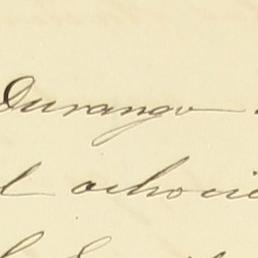 Durango
l ochocie